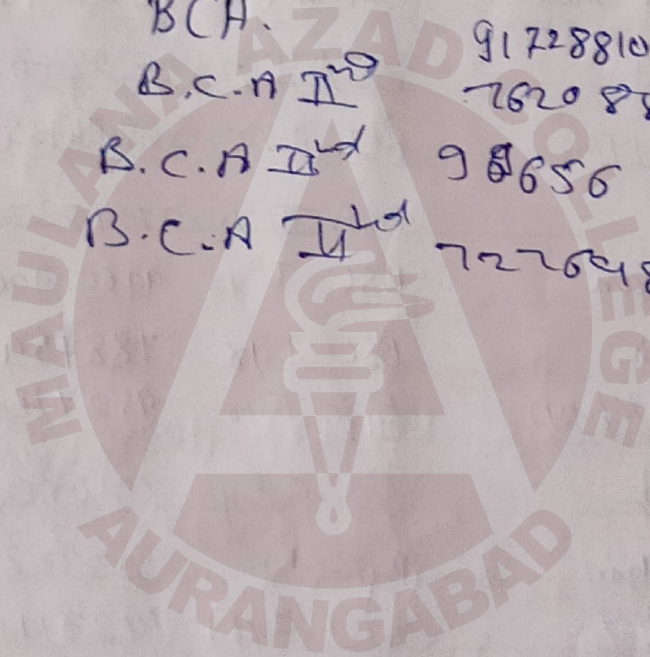 BCA. 91728810
B.C.A IInd 762088
B.C.A IInd 98656
B.C.A IInd 722648
MAULANA AZAD COLLEGE
AURANGABAD